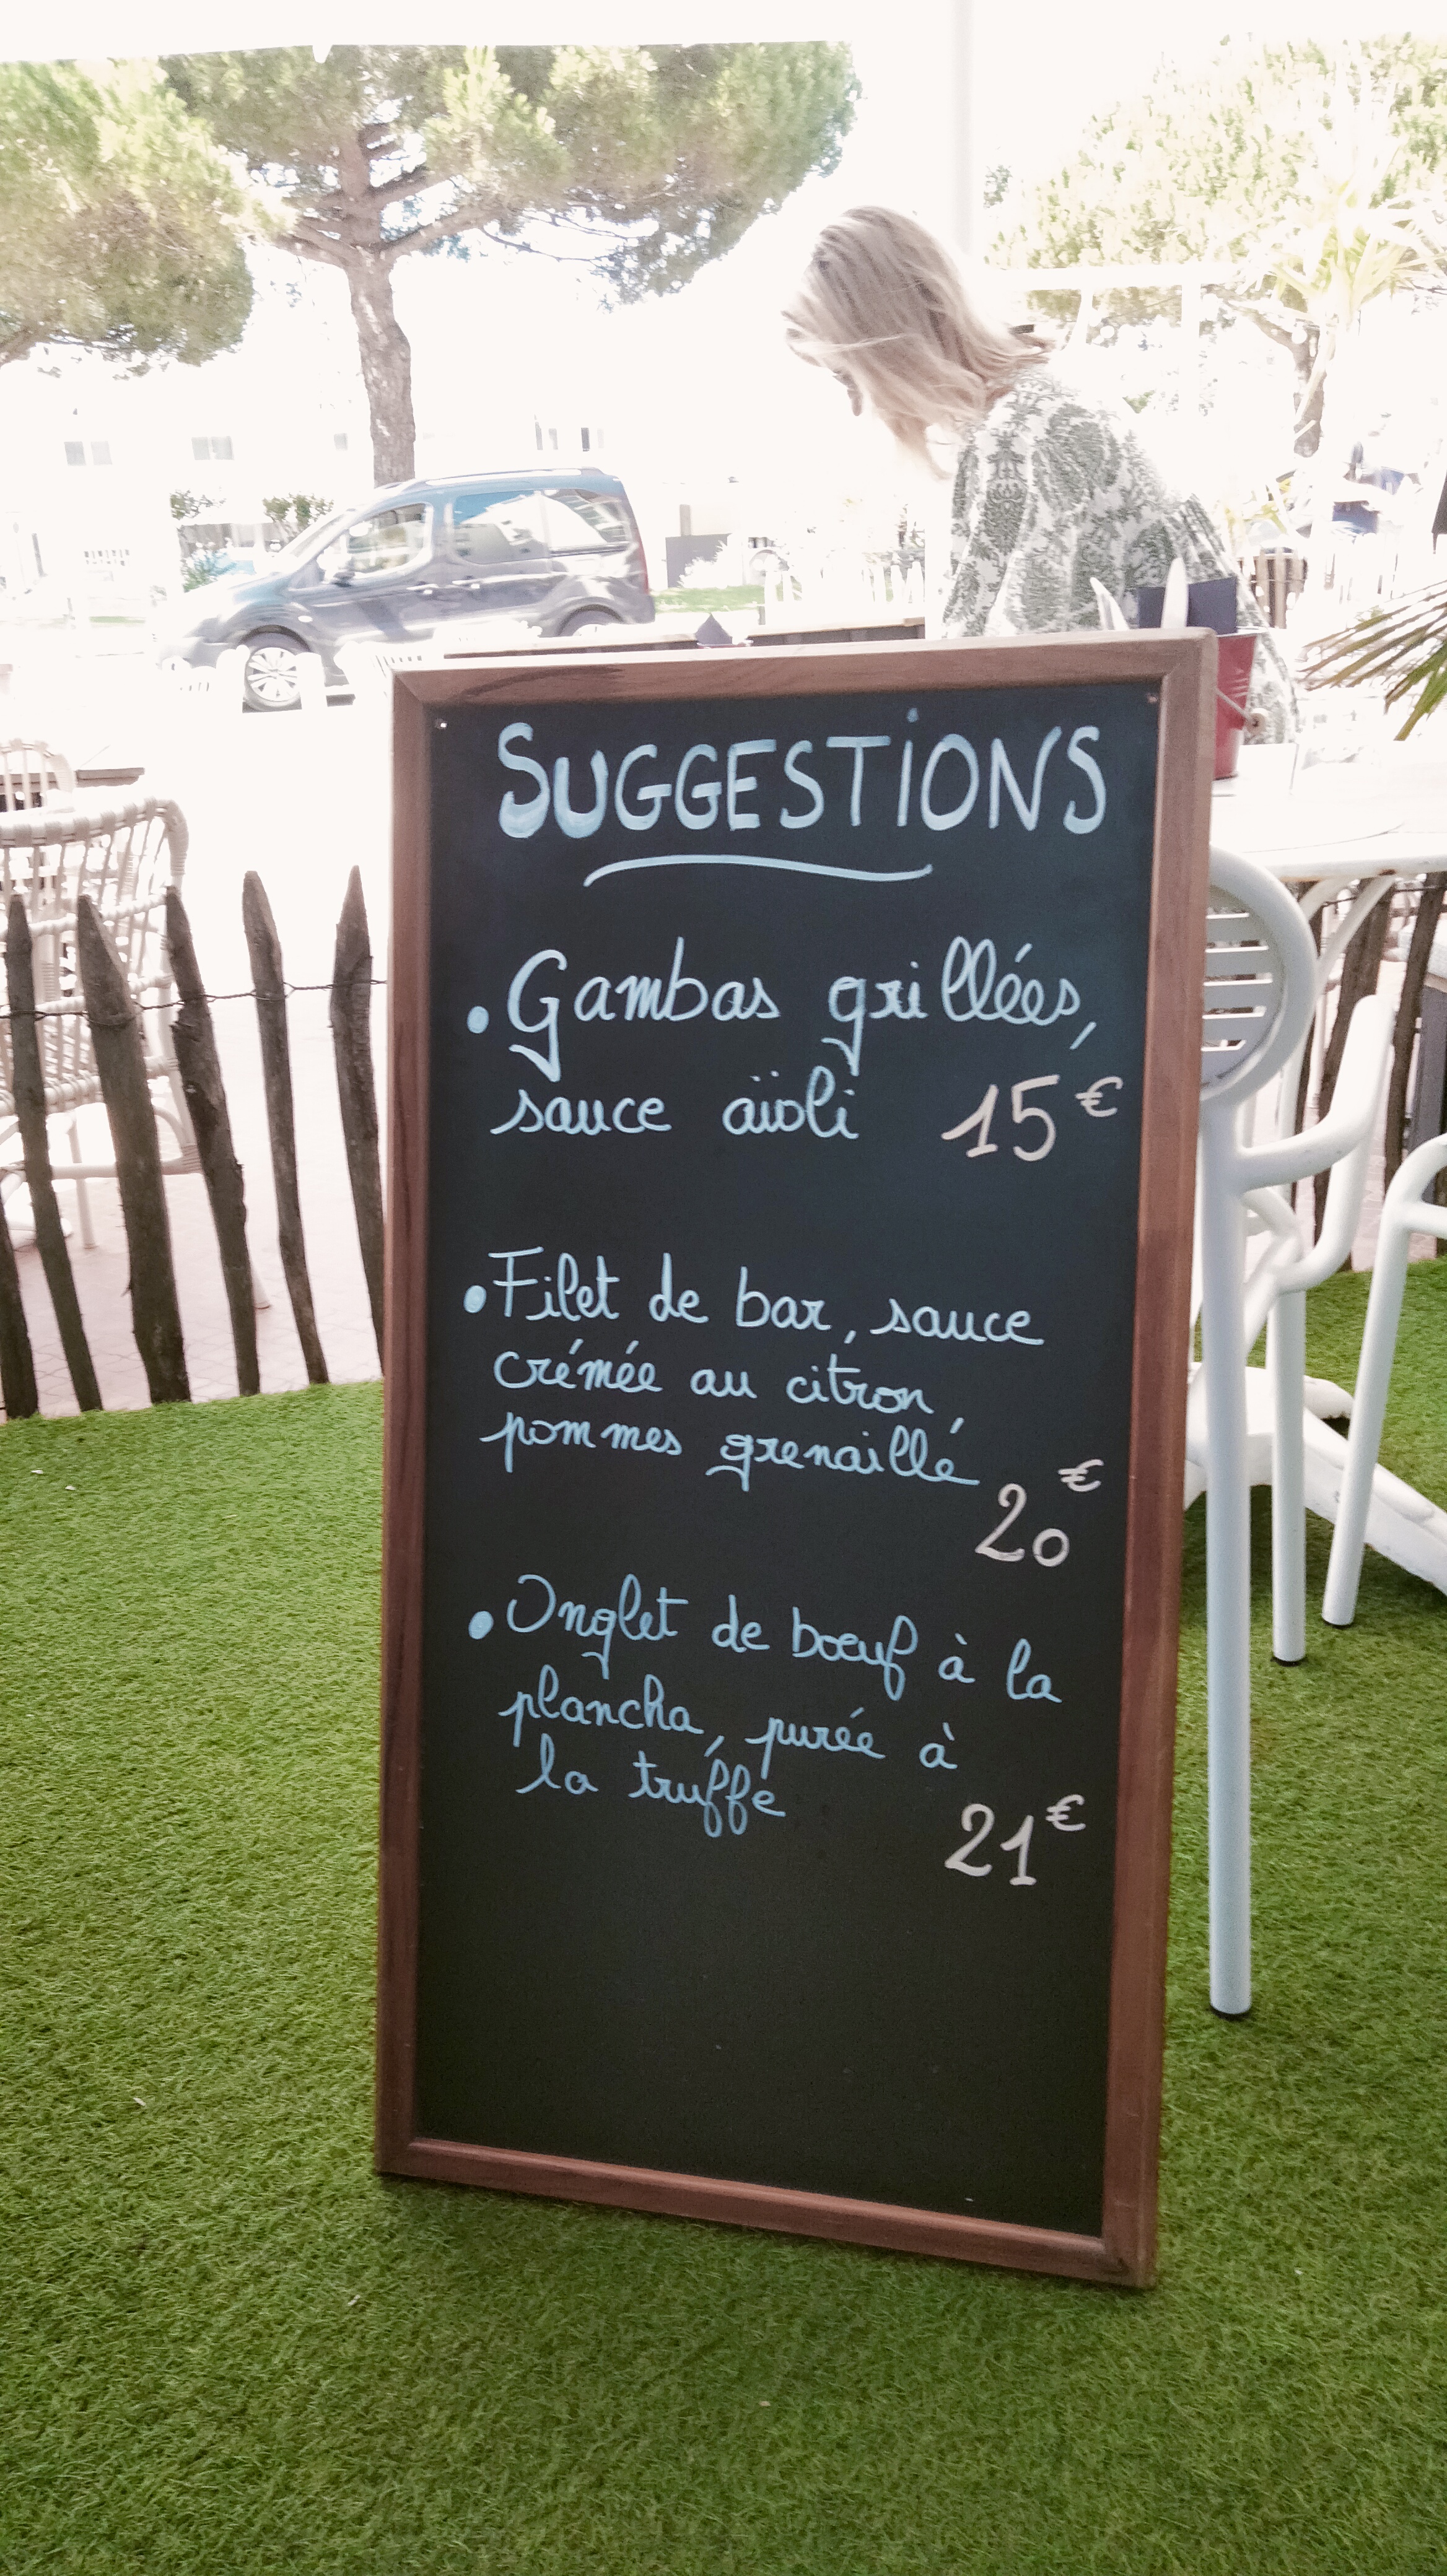 SUGGESTIONS
• Gambas grillées,
sauce aïoli 15€
• Filet de bar, sauce
crémée au citron,
pommes grenaille
20€
• Onglet de boeuf à la
plancha, purée à
la truffe
21€